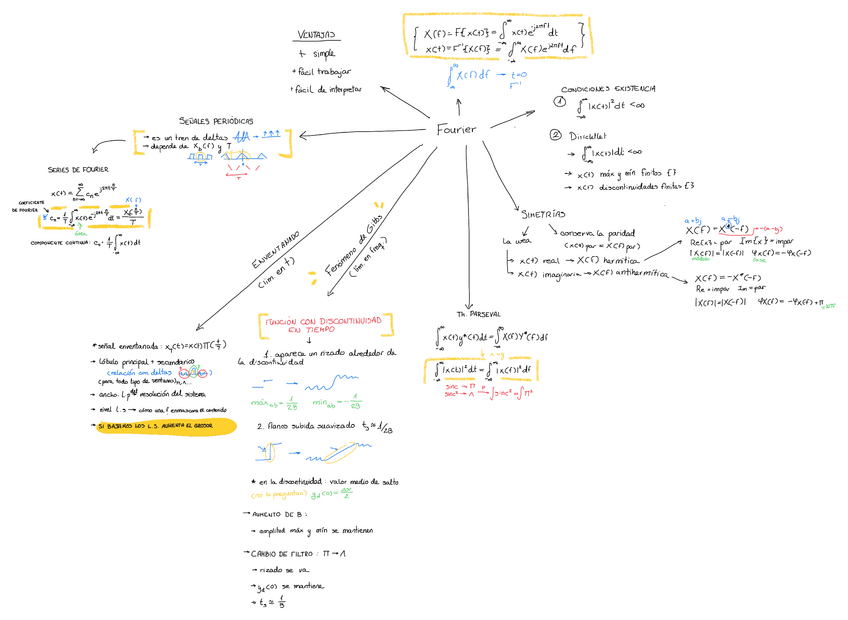 VENTAJAS
+ simple
+ fácil trabajar
+ fácil de interpretar
X(f) = F{x(t)} = ∫_{-∞}^{∞} x(t) e^{-j2πft} dt
x(t) = F⁻¹{X(f)} = ∫_{-∞}^{∞} X(f) e^{j2πft} df
∫_{-∞}^{∞} X(f) df → t=0
F⁻¹
Fourier
CONDICIONES EXISTENCIA
① ∫_{-∞}^{∞} |x(t)|² dt < ∞
② Dirichlet
→ ∫_{-∞}^{∞} |x(t)| dt < ∞
→ x(t) máx y mín finitos
→ x(t) discontinuidades finitas
SEÑALES PERIÓDICAS
→ es un tren de deltas
→ depende de X_b(f) y T
T
SERIES DE FOURIER
x(t) = ∑_{n=-∞}^{∞} c_n e^{j2π n/T t}
COEFICIENTE
DE FOURIER
X(f)
c_n = 1/T ∫ x(t) e^{-j2π n/T t} dt = X(n/T)/T
COMPONENTE CONTINUA: c_0 = 1/T ∫ x(t) dt
SIMETRÍAS
La wea
conserva la paridad
(x(t) par = X(f) par)
→ x(t) real → X(f) hermítica
→ x(t) imaginaria → X(f) antihermítica
a+bj
a-bj
X(f) = X*(-f)
-(a-b)
Re{x} = par Im{x} = impar
|X(f)| = |X(-f)| φx(f) = -φx(-f)
módulo
fase
X(f) = -X*(-f)
Re = impar Im = par
|X(f)| = |X(-f)| φX(f) = -φx(-f) + π
ENVENTANADO
(lim. en t)
Fenómeno de Gibbs
(lim. en freq.)
* señal enventanada: x_v(t) = x(t) Π(t/T)
→ lóbulo principal + secundarios
(relación con deltas
(para todo tipo de ventanas)
→ ancho L.p resolución del sistema
→ nivel L.S → cómo una f enmascara el contenido
→ SI BAJAMOS LOS L.S. AUMENTA EL GROSOR
FUNCIÓN CON DISCONTINUIDAD
EN TIEMPO
1. aparece un rizado alrededor de
la discontinuidad
máx_ab = 1/2B mín_ab = -1/2B
2. flanco subida suavizado t_s ≈ 1/2B
★ en la discontinuidad: valor medio de salto
(no lo preguntan) y_d(0) = Δx/2
→ AUMENTO DE B:
→ amplitud máx y mín se mantienen
→ CAMBIO DE FILTRO: Π → Λ
→ rizado se va
→ y_d(0) se mantiene
→ t_s ≈ 1/B
Th. PARSEVAL
∫_{-∞}^{∞} x(t) y*(t) dt = ∫_{-∞}^{∞} X(f) Y*(f) df
x=y
∫_{-∞}^{∞} |x(t)|² dt = ∫_{-∞}^{∞} |X(f)|² df
sinc → Π
sinc² → Λ
→ ∫ sinc² = ∫ Π²